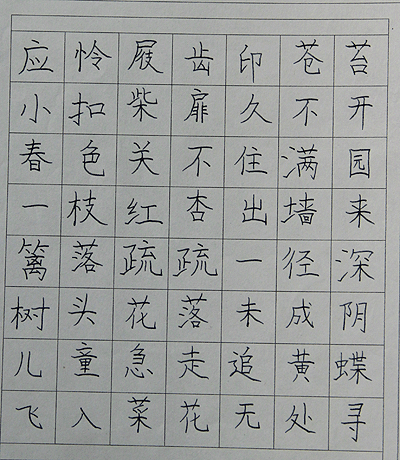 应怜屐齿印苍苔
小扣柴扉久不开
春色关不住满园
一枝红杏出墙来
篱落疏疏一径深
树头花落未成阴
儿童急走追黄蝶
飞入菜花无处寻